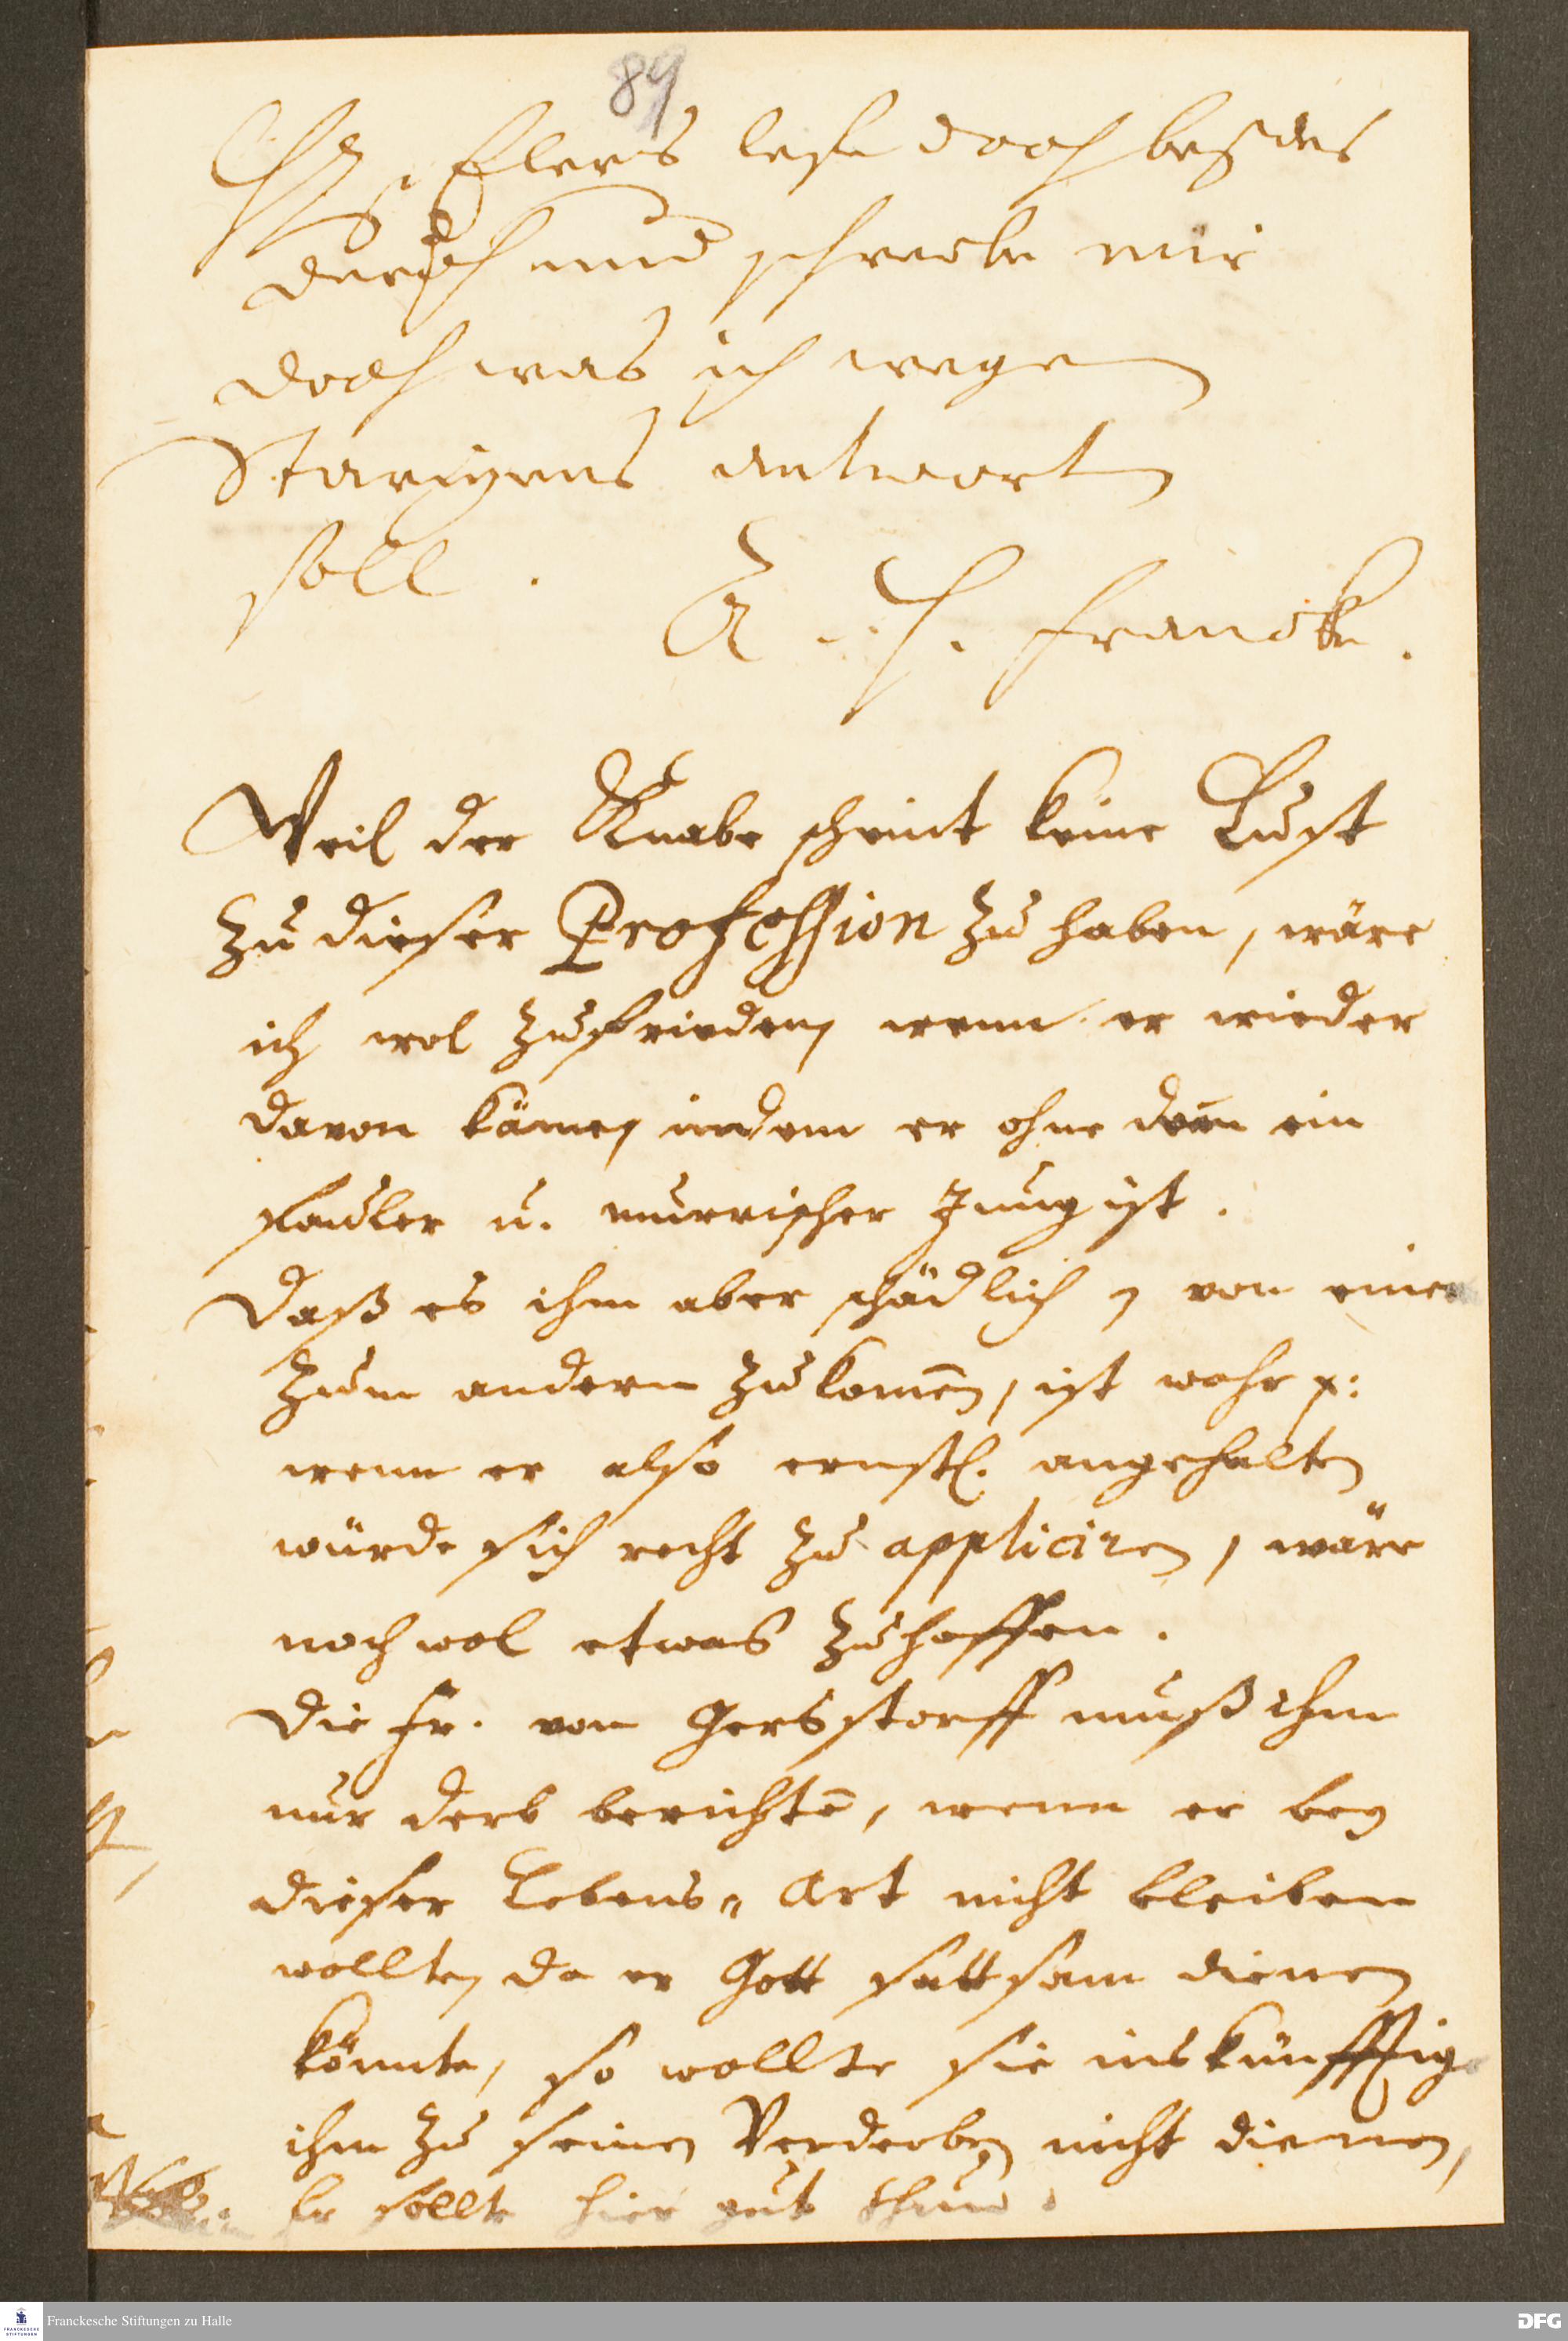 89
Hr. Elers lese doch beydes
durch und schreibe mir
doch was ich wegen
antworten
soll. A. H. Francke.
Weil der Knabe scheint keine Lust
zu dieser Profession zu haben, wäre
ich wol zufrieden, wenn er wieder
davon käme, indem er ohne dem ein
fauler u. murrischer Jung ist.
Daß es ihm aber schädlich, von einem
zum andern zu kom̄en, ist wahr p:
wenn er also ernstl. angehalten
würde sich recht zu appliciren, wäre
noch wol etwas zu hoffen.
Die Fr. von Gersstorff muß ihm
nur derb berichtē, wenn er bey
dieser Lebens-Art nicht bleiben
wollte, da er Gott sattsam dienen
könnte, so wollte sie inskünfftige
ihm zu seinen Verderben nicht dienen,
Er sollte hier gut thun.
Franckesche Stiftungen zu Halle
DFG